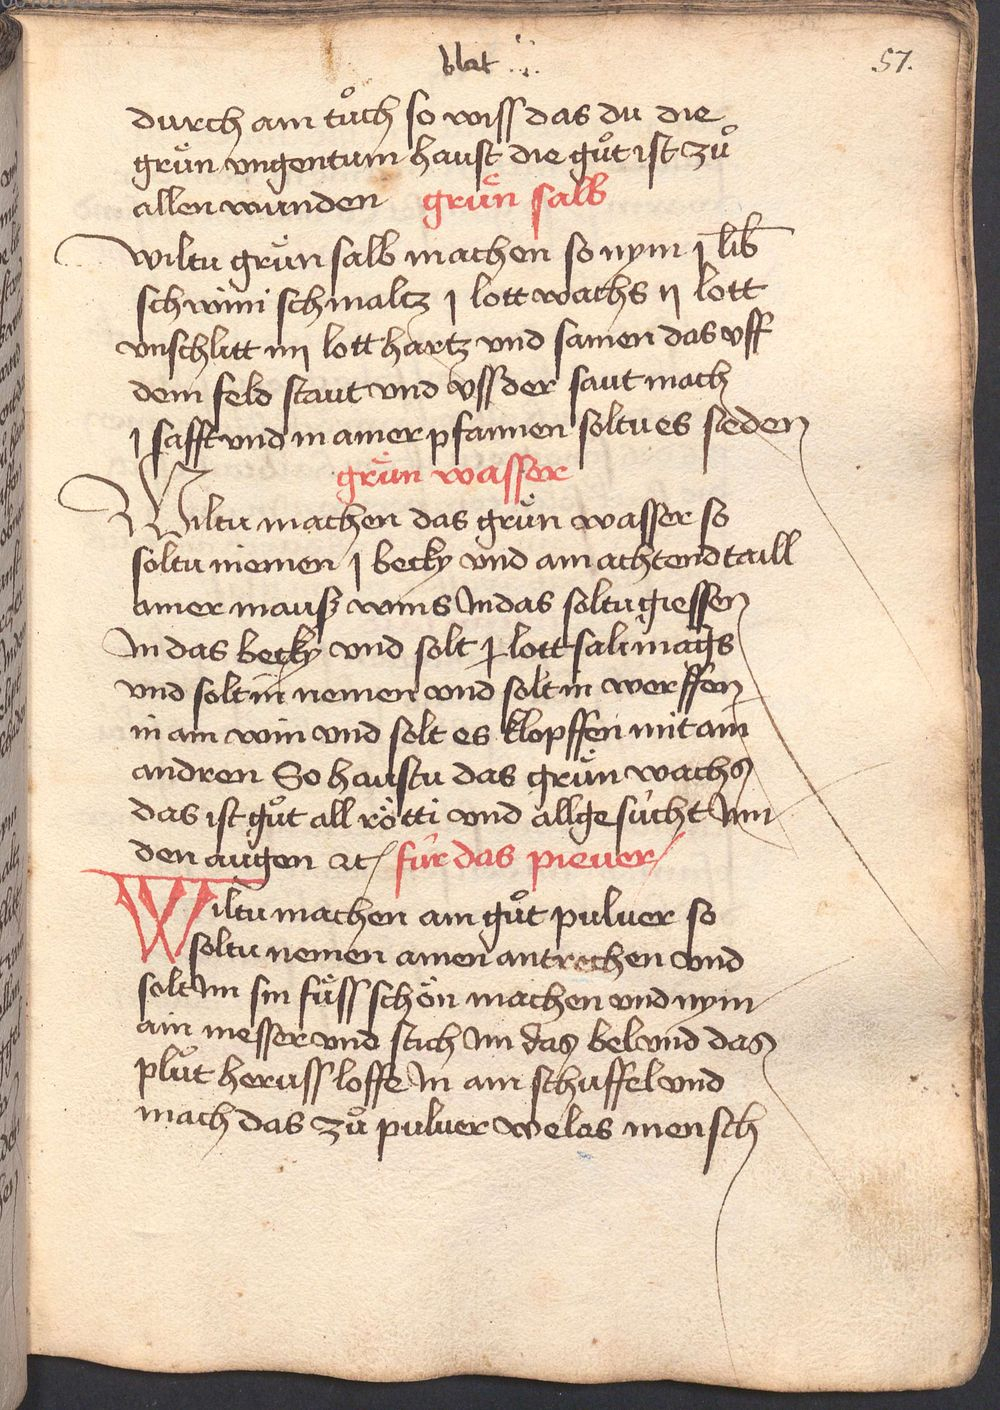 blat
57.
durch ain tuͦch so wiss das du die
gruͤn vngentum haust die guͦt ist zuͦ
allen wunden gruͤn salb
wiltu gruͤn salb machen so nym j lib
schwini schmaltz j lott wachs ij lott
vnschlitt iiij lott hartz vnd samen das vff
dem feld staut vnd vss der saut mach
j safft vnd in ainer pfannen soltu es sieden
gruͤn wasser
Wiltu machen das gruͤn wasser so
soltu niemen j becky vnd ain achtendtaill
ainer mausz wins In das soltu giessen
In das becky vnd solt lott
vnd solt in nemen vnd solt in werffen
in ain win vnd solt es klopffen mit ain
andren So haustu das gruͤn wachs
das ist guͦt all roͤtti vnd all gesücht Inn
den augen für das pieuer
Wiltu machen ain guͦt puluer so
soltu nemen ainen antrechen vnd
solt Im sin fuͤss schoͤn machen vnd nym
ain messer vnd stich Im das bel vnd das
pluͦt heruss losse In ain schuffel vnd
mach das zuͦ puluer welas mensch